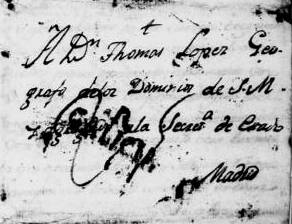 A Dn. Thomas Lopez Geo-
grafo de los Dominios de S. M.
la Secret.a de Estado
Madrid